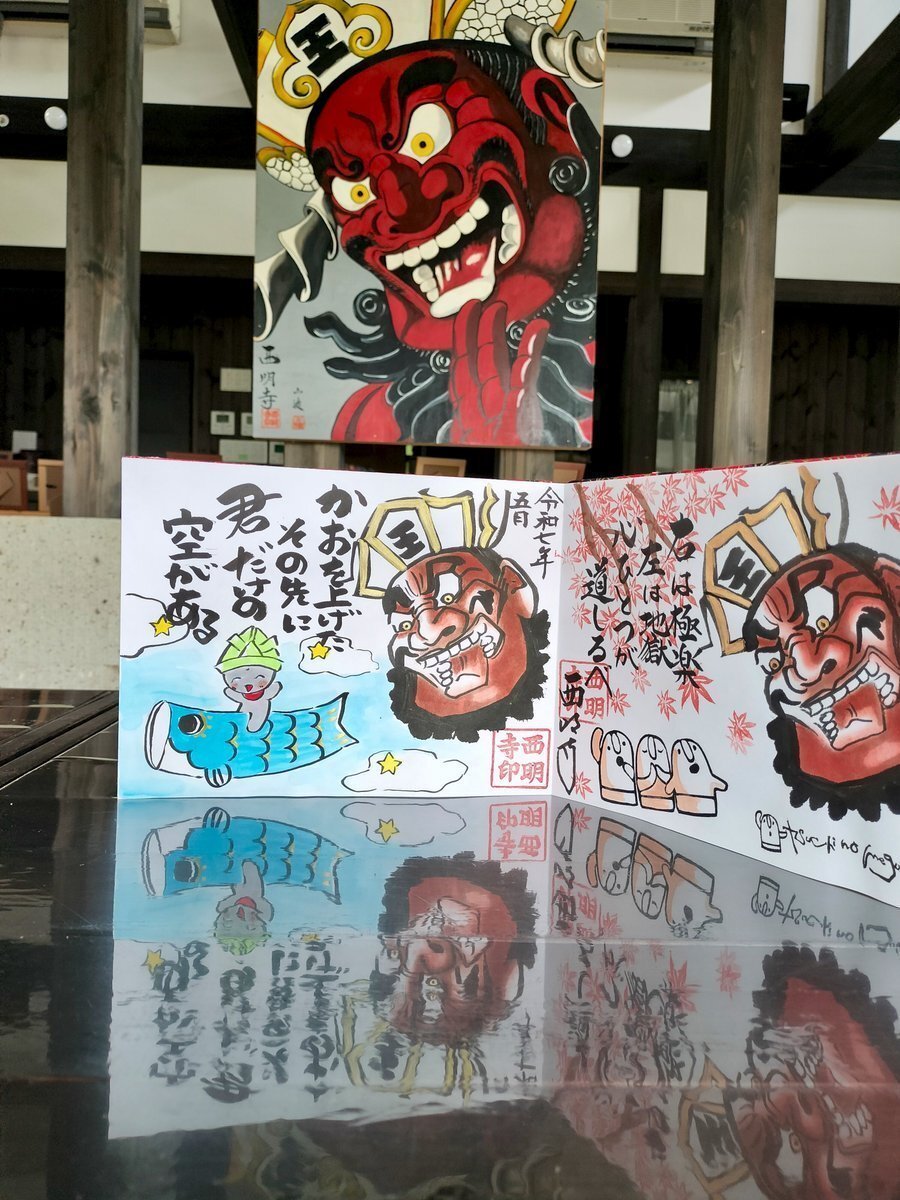 王
西明寺
令和七年
五月
王
かおを上げた
その先に
君だけの
空がある
西明
寺印
王
右は極楽
左は地獄
心ひとつが
道しるべ
西明